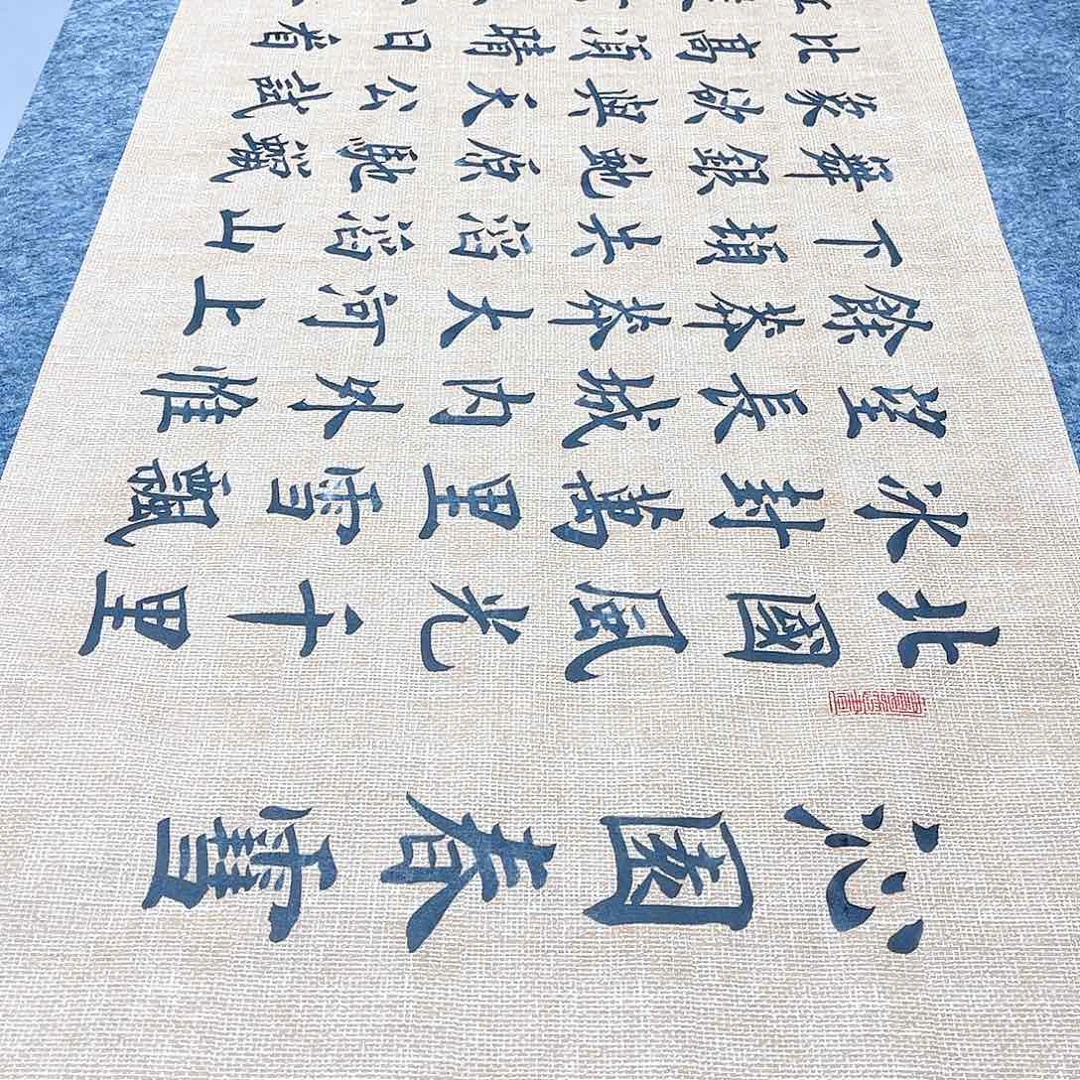 沁園春雪
北國風光千里
冰封萬里雪飄
望長城內外惟
餘莽莽大河上
下頓失滔滔山
舞銀蛇原馳蠟
象欲與天公試
比高須晴日看